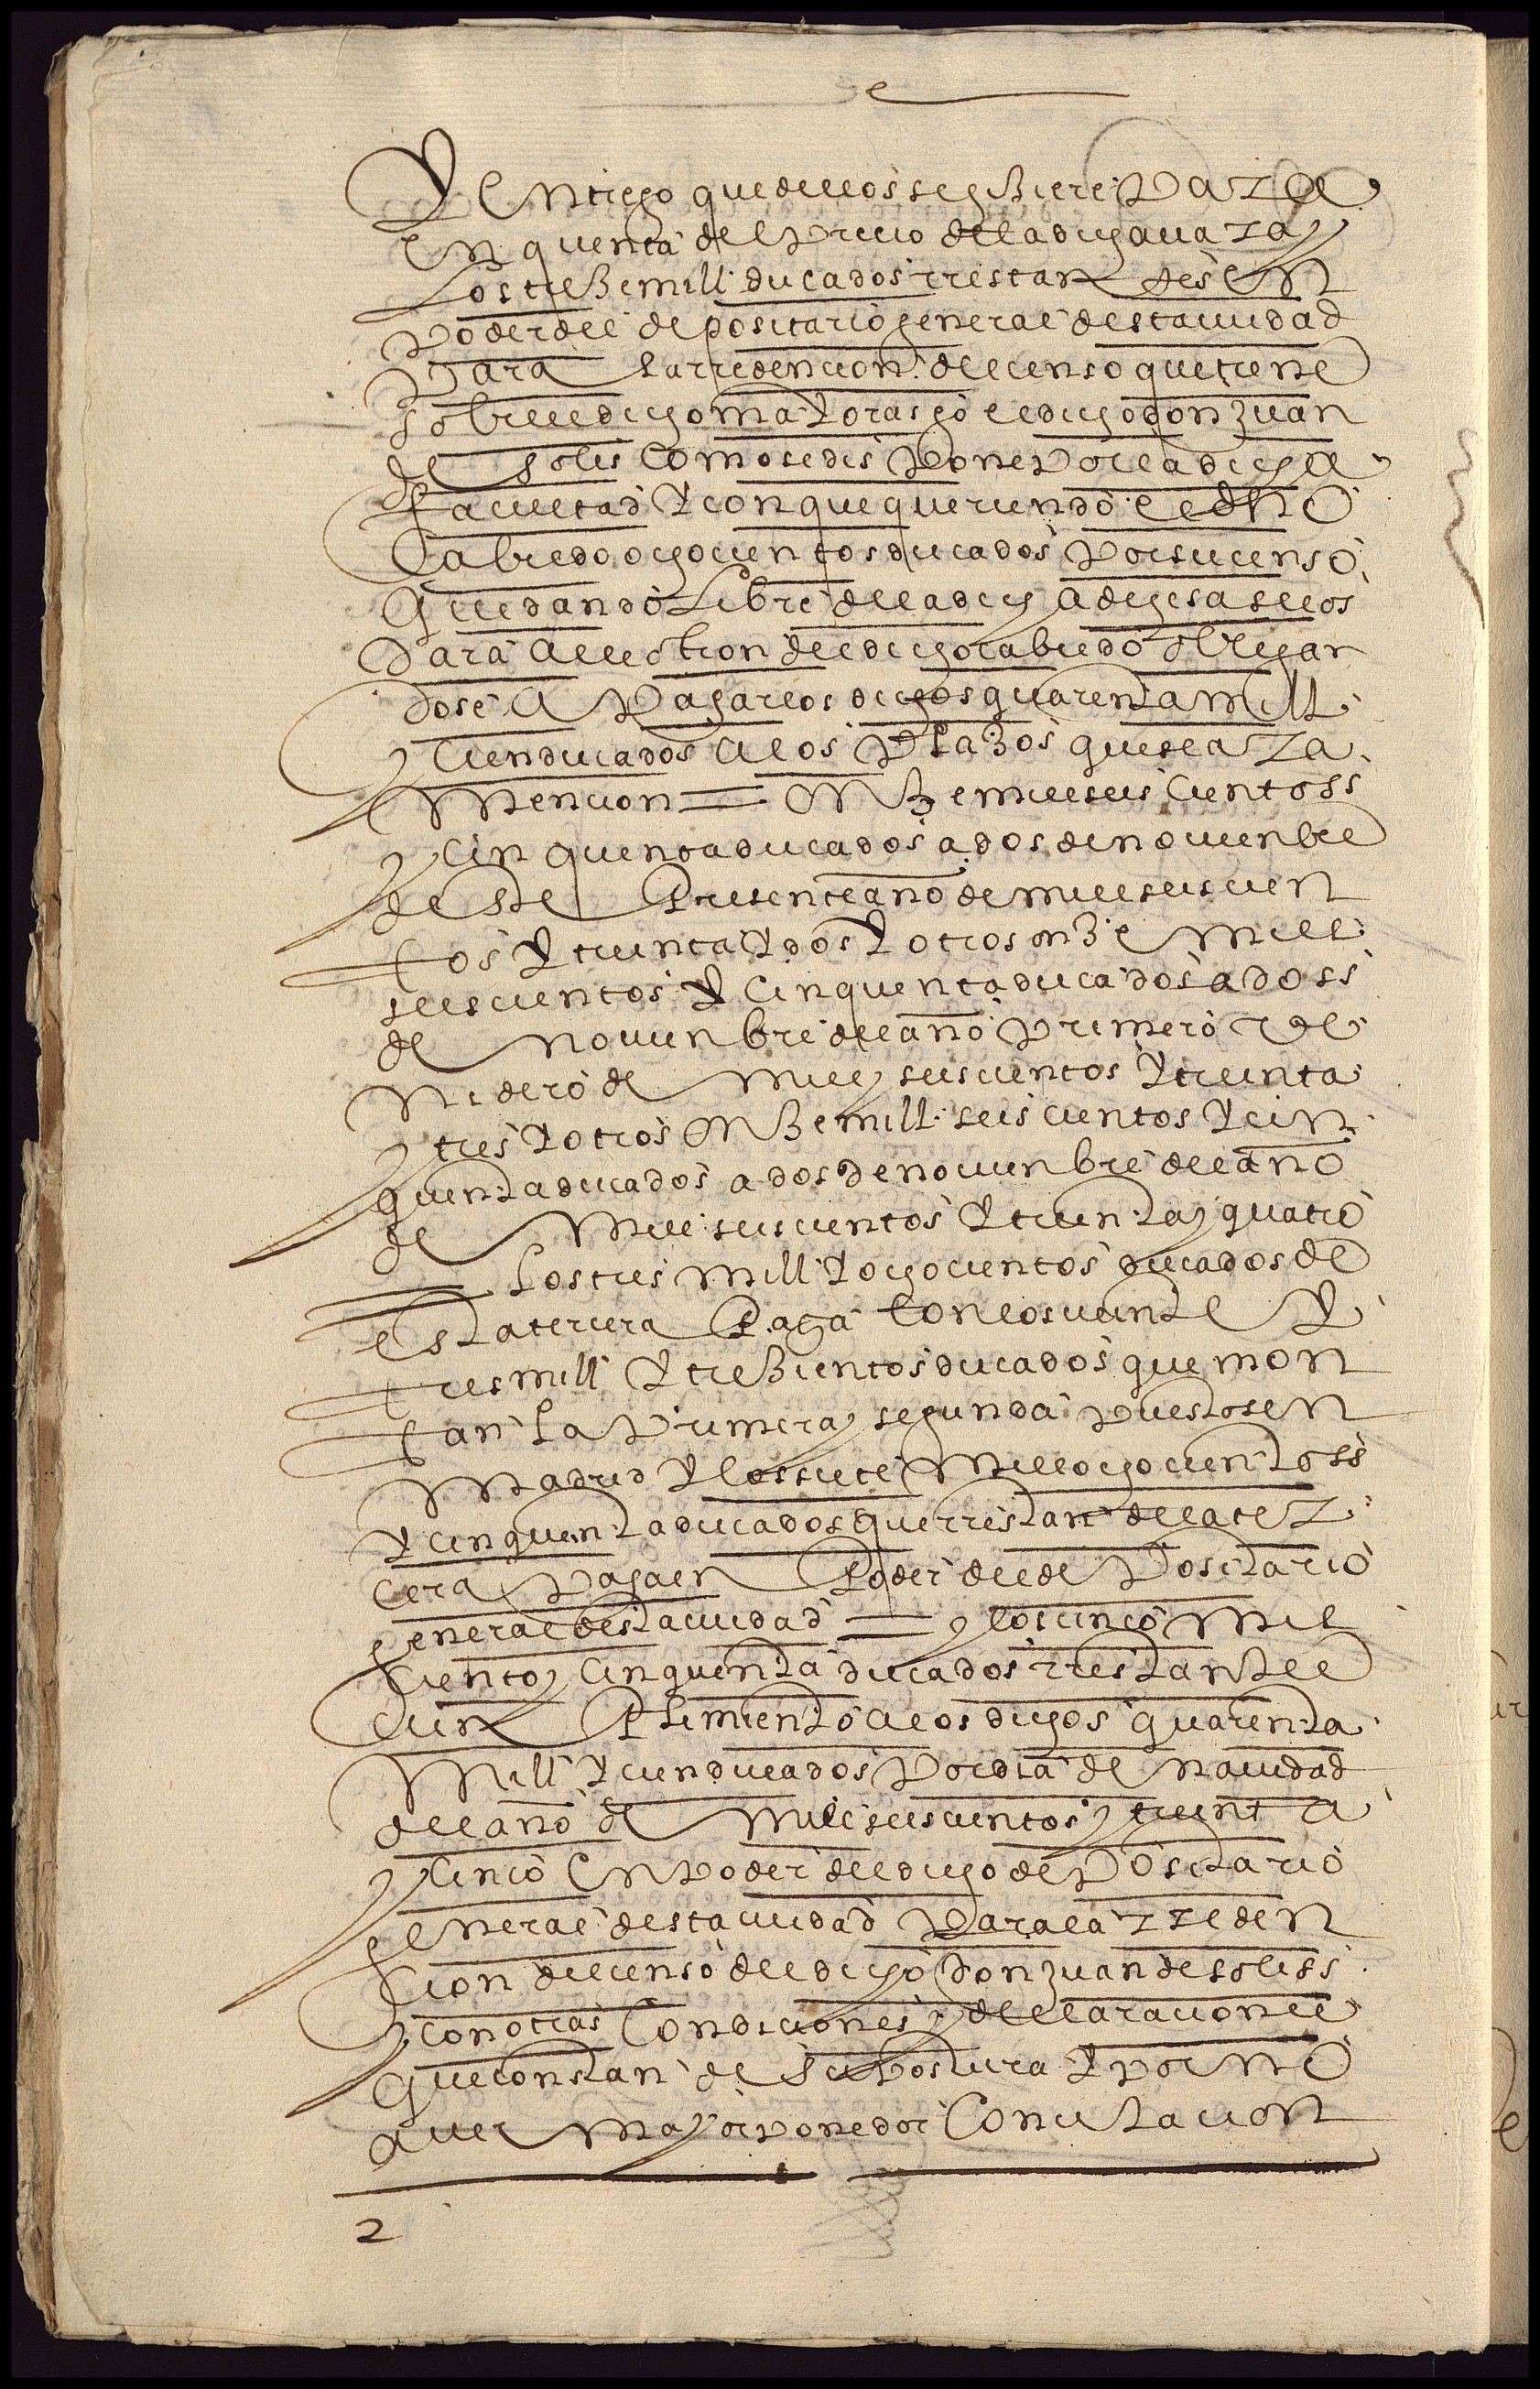 Y entrego que dellos se hiziere Para
en quenta del Precio de la dicha uara y
Los treze mill ducados rrestantes en
Poder del depositario general desta ciudad
Para La rredencion del censo que tiene
sobre el dicho mayorasgo el dicho don Juan
de Solis Como se dispone Por la dicha
facultad Y con que queriendo el dho
Cabildo ochocientos ducados Por su censo
Quedando Libre de la dicha dehesa se los
Dara a election del dicho cabildo obligan
dose a Pagar los dichos quarenta mill
y cien ducados a los Plazos que se ara
Mencion = Onze mill seiscientoss
y cinquenta ducados a dos de nouienbre
deste Presente año de mill seiscien
tos Y treinta Y dos Y otros onze mill
seiscientos Y Cinquenta ducados a doss
de Nouienbre del año Primero Ve
nidero de mill y seiscientos Y treinta
y tres Y otros Onze mill seiscientos Y cin
quenta ducados a dos de nouienbre del año
de Mill seiscientos Y treinta y quatro
= Los tres mill Y ochocientos ducados de
esta tercera Paga Con los veinte Y
tres mill Y trezientos ducados que mon
tan La Primera y segunda Puestos en
Madrid Y los siete Mill ochocientoss
Y cinquenta ducados que rrestan de la ter
cera Paga en Poder del de Positario
general desta ciudad = y los cinco mil
Ciento y Cinquenta ducados rrestantes
Cun Plimiento a los dichos quarenta
Mill Y cien ducados Por dia de Nauidad
del año de Mill seiscientos y treinta
y Cinco en Poder del dicho de Positario
general desta ciudad Para la rreden
cion del censo del dicho Don Juan de soliss
y con otras Condiciones y declaraciones
Que constan de su Postura Y Por no
auer Mayor Ponedor Con citacion
2